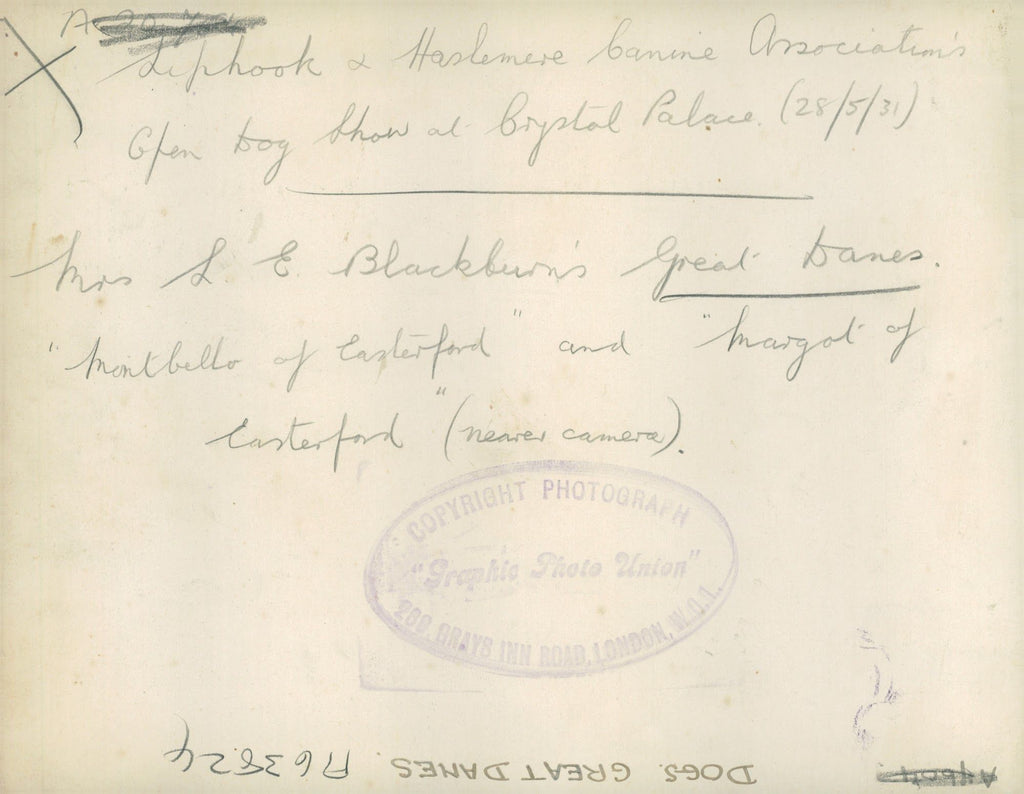 Liphook & Haslemere Canine Association's
Open Dog Show at Crystal Palace. (28/5/31)
Mrs L E Blackburn's Great Danes.
"Montbello of Easterford" and "Margot of
Easterford" (nearer camera).
COPYRIGHT PHOTOGRAPH
"Graphic Photo Union"
GRAYS INN ROAD, LONDON, W.C.1.
DOGS. GREAT DANES. A63824